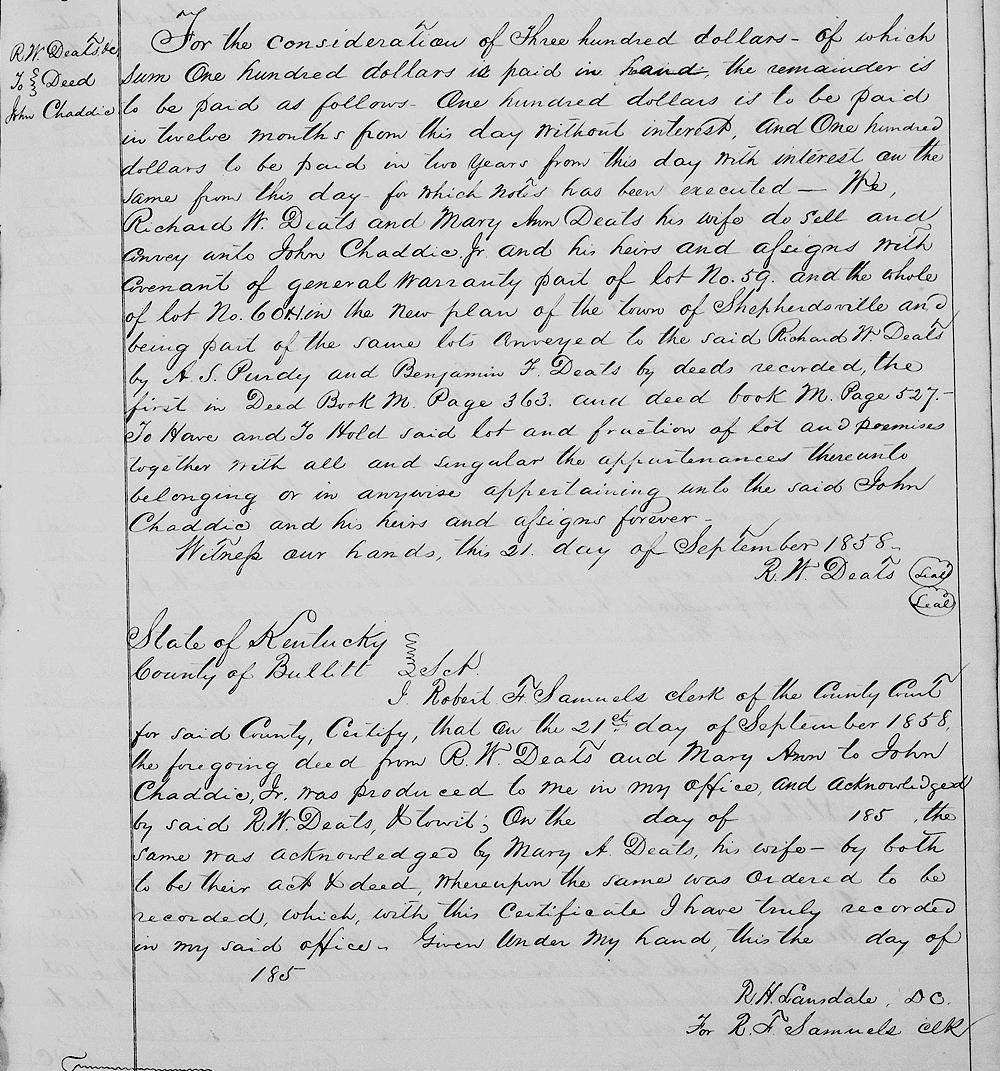 R.W. Deats &c
To Deed
John Chaddic
For the consideration of Three hundred dollars - of which
sum One hundred dollars is paid in hand, the remainder is
to be paid as follows - One hundred dollars is to be paid
in twelve months from this day without interest, and One hundred
dollars to be paid in two years from this day with interest on the
same from this day - for which notes has been executed — We,
Richard W. Deats and Mary Ann Deats his wife do sell and
convey unto John Chaddic, Jr. and his heirs and assigns with
covenant of general warranty part of lot No. 59. and the whole
of lot No. 60 in the new plan of the town of Shepherdsville and
being part of the same lots conveyed to the said Richard W. Deats
by A. S. Purdy and Benjamin F. Deats by deeds recorded, the
first in Deed Book M. Page 363. and deed book M. Page 527 -
To Have and To Hold said lot and fraction of lot and premises
together with all and singular the appurtenances thereunto
belonging or in anywise appertaining unto the said John
Chaddic and his heirs and assigns forever -
Witness our hands, this 21. day of September 1858.
R. W. Deats (Seal)
(Seal)
State of Kentucky
County of Bullitt Sct.
I. Robert F. Samuels clerk of the County Court
for said County, Certify, that on the 21st day of September 1858,
the foregoing deed from R. W. Deats and Mary Ann to John
Chaddic, Jr. was produced to me in my office, and acknowledged
by said R.W. Deats, & towit; On the day of 185 , the
same was acknowledged by Mary A. Deats, his wife - by both
to be their act & deed, whereupon the same was ordered to be
recorded, which, with this certificate I have truly recorded
in my said office. Given Under My hand, this the day of
185
R. H. Lansdale, DC.
For R. F. Samuels clk